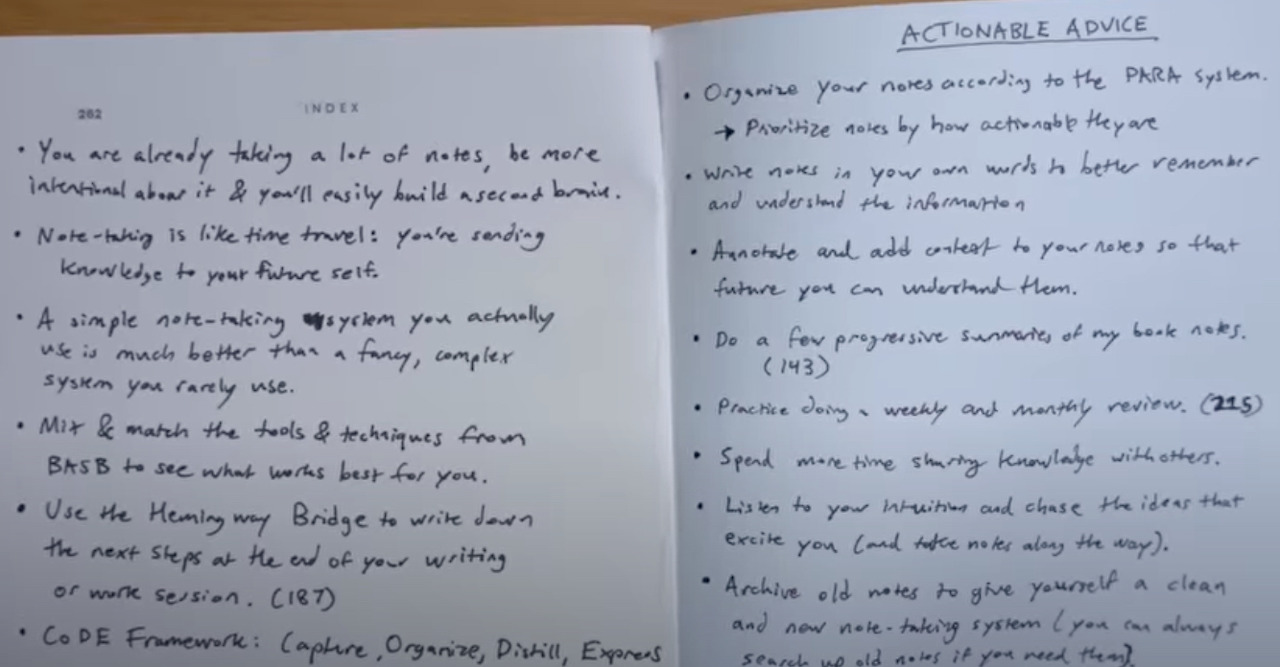 282
INDEX
• You are already taking a lot of notes, be more
intentional about it & you'll easily build a second brain.
• Note-taking is like time travel: you're sending
knowledge to your future self.
• A simple note-taking system you actually
use is much better than a fancy, complex
system you rarely use.
• Mix & match the tools & techniques from
BASB to see what works best for you.
• Use the Hemingway Bridge to write down
the next steps at the end of your writing
or work session. (187)
• CODE Framework: Capture, Organize, Distill, Express
ACTIONABLE ADVICE
• Organize your notes according to the PARA system.
→ Prioritize notes by how actionable they are
• Write notes in your own words to better remember
and understand the information
• Annotate and add context to your notes so that
future you can understand them.
• Do a few progressive summaries of my book notes.
(143)
• Practice doing a weekly and monthly review. (215)
• Spend more time sharing knowledge with others.
• Listen to your intuition and chase the ideas that
excite you (and take notes along the way).
• Archive old notes to give yourself a clean
and new note-taking system (you can always
search up old notes if you need them)